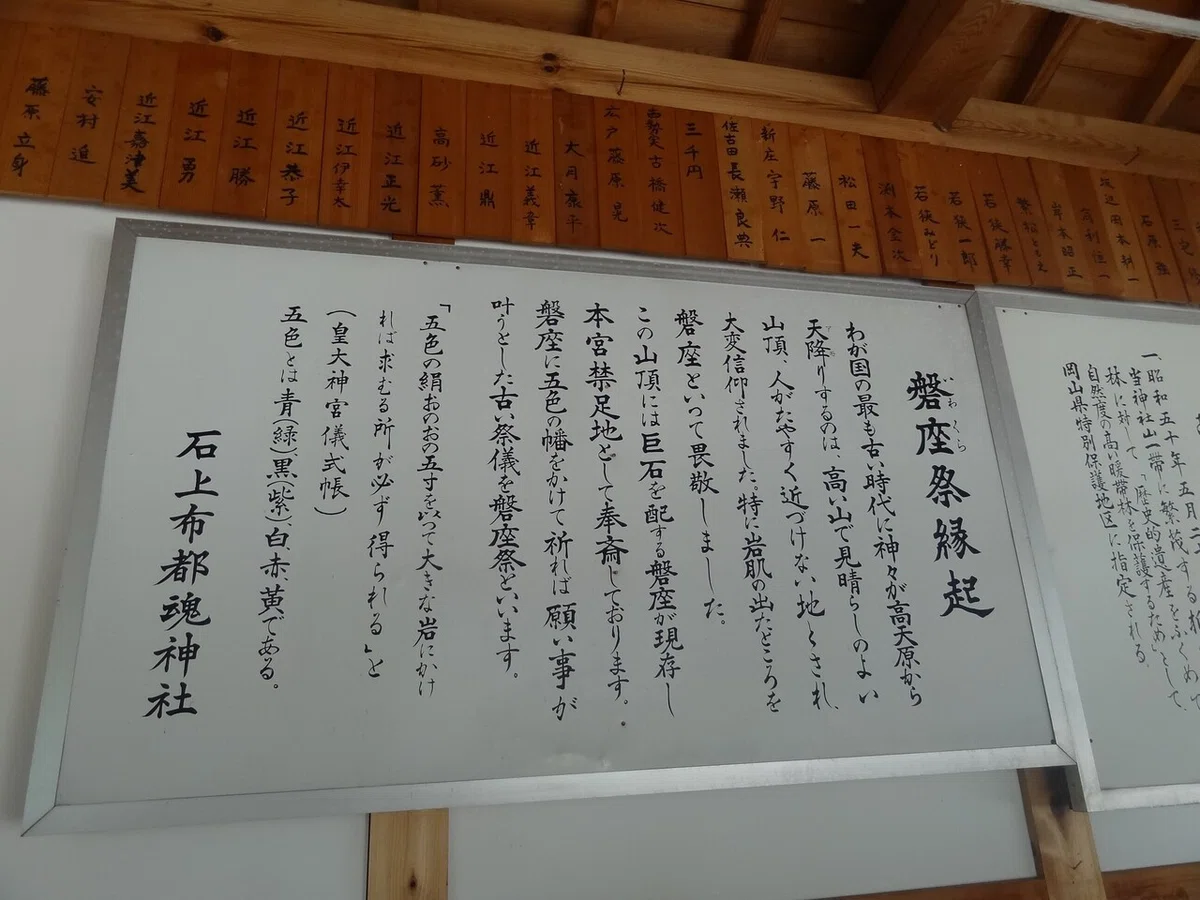 三宅
石原
岡本
恒一
岸本昭正
繁松ともえ
若狭勝幸
若狭一郎
若狭みどり
渕本金次
松田一夫
藤原一
新庄 宇野仁
佐古田 長瀬良典
三千円
古橋健次
広戸 藤原晃
大月康平
近江義章
近江鼎
高砂薫
近江正光
近江伊幸太
近江恭子
近江勝
近江勇
近江嘉津美
安村進
藤原立身
一、昭和五十年五月
当神社山一帯に繁茂する
林に対して「歴史的遺産をふくめて
自然度の高い暖帯林を保護するため」として、
岡山県特別保護地区に指定される。
磐座祭縁起
いわくら
わが国の最も古い時代に神々が高天原から
天降りするのは、高い山で見晴らしのよい
山頂、人がたやすく近づけない地とされ、
大変信仰されました。特に岩肌の出たところを
磐座といって畏敬しました。
この山頂には巨石を配する磐座が現存し
本宮禁足地として奉斎しております。
磐座に五色の幡をかけて祈れば願い事が
叶うとした古い祭儀を磐座祭といいます。
「五色の絹おのおの五寸を以って大きな岩にかけ
れば求むる所が必ず得られる」と
(皇大神宮儀式帳)
五色とは青(緑)、黒(紫)、白、赤、黄である。
石上布都魂神社